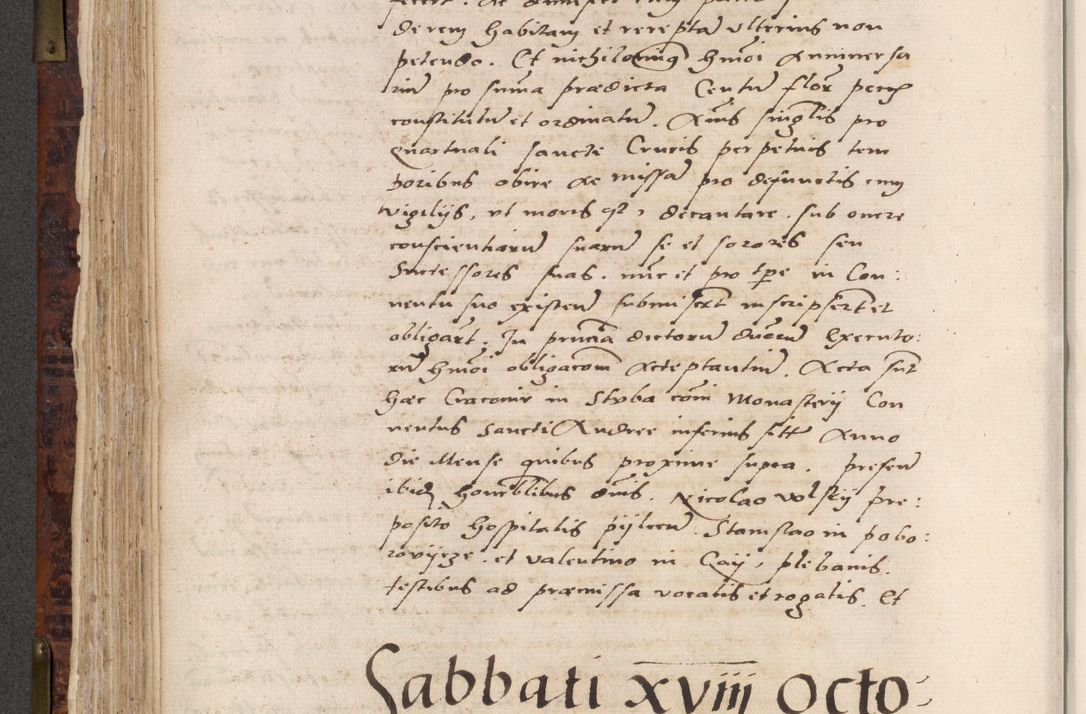 derem habitam et rerepta ulterius non
petendo. Et nichilominus hmoi Anniversa
rium pro summa praedicta Centum flor pecch
constitutum et ordinatum. Annis singulis pro
quartuali Sancte Crucis perpetuis tem
poribus obire ac missam pro defunctis cum
vigilijs, ut moris est, decantare, sub onere
conscientiarum suarum se et sorores seu
Successores suas, nunc et pro tpe in Con:
ventu suo existen submiserunt inscripserunt et
obligarunt. In pruncia dictorum duorum Executo:
rum hmoi obligacom Acceptantium. Acta sunt
haec Cracovie in Stuba com Monasterij Con
ventus Sancti Andree inferius sitt Anno
die Mense quibus proxime supra. presen
ibidem honorblibus dnis. Nicolao Volskij pre:
posito hospitalis pijlcen. Stanislao in pobo:
rovijcze, et Valentino in Caij, plebanis.
testibus ad praemissa vocatis et rogatis. Et
Sabbati xviij Octo